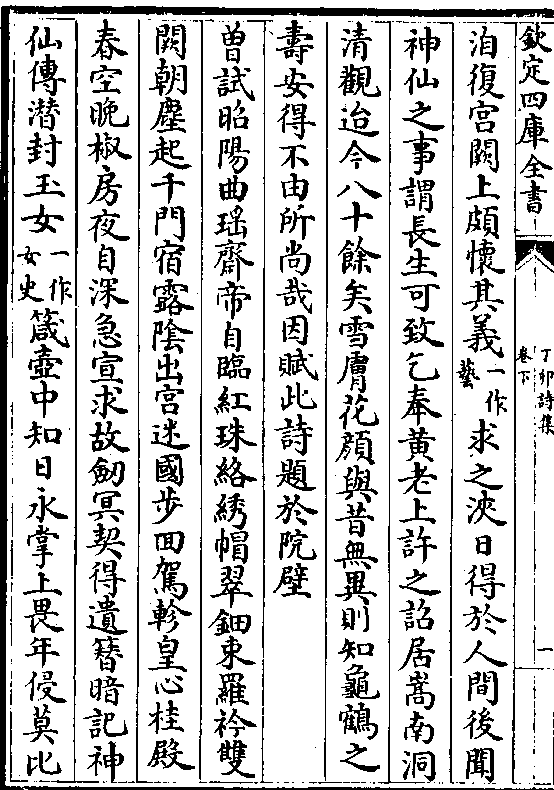 欽定四庫全書
丁卯詩集
卷下
一
洎復宮闕上頗懷其義一作藝求之浹日得於人間後聞
神仙之事謂長生可致乞奉黄老上許之詔居嵩南洞
清觀迨今八十餘矣雪膚花顔與昔無異則知龜鶴之
壽安得不由所尚哉因賦此詩題於院壁
曽試昭陽曲瑶齋帝自臨紅珠絡綉帽翠鈿束羅衿雙
闕朝塵起千門宿露陰出宫迷國步回駕軫皇心桂殿
春空晚椒房夜自深急宣求故劒冥契得遺簪暗記神
仙傳潜封玉女一作女史箴壺中知日永掌上畏年侵莫比